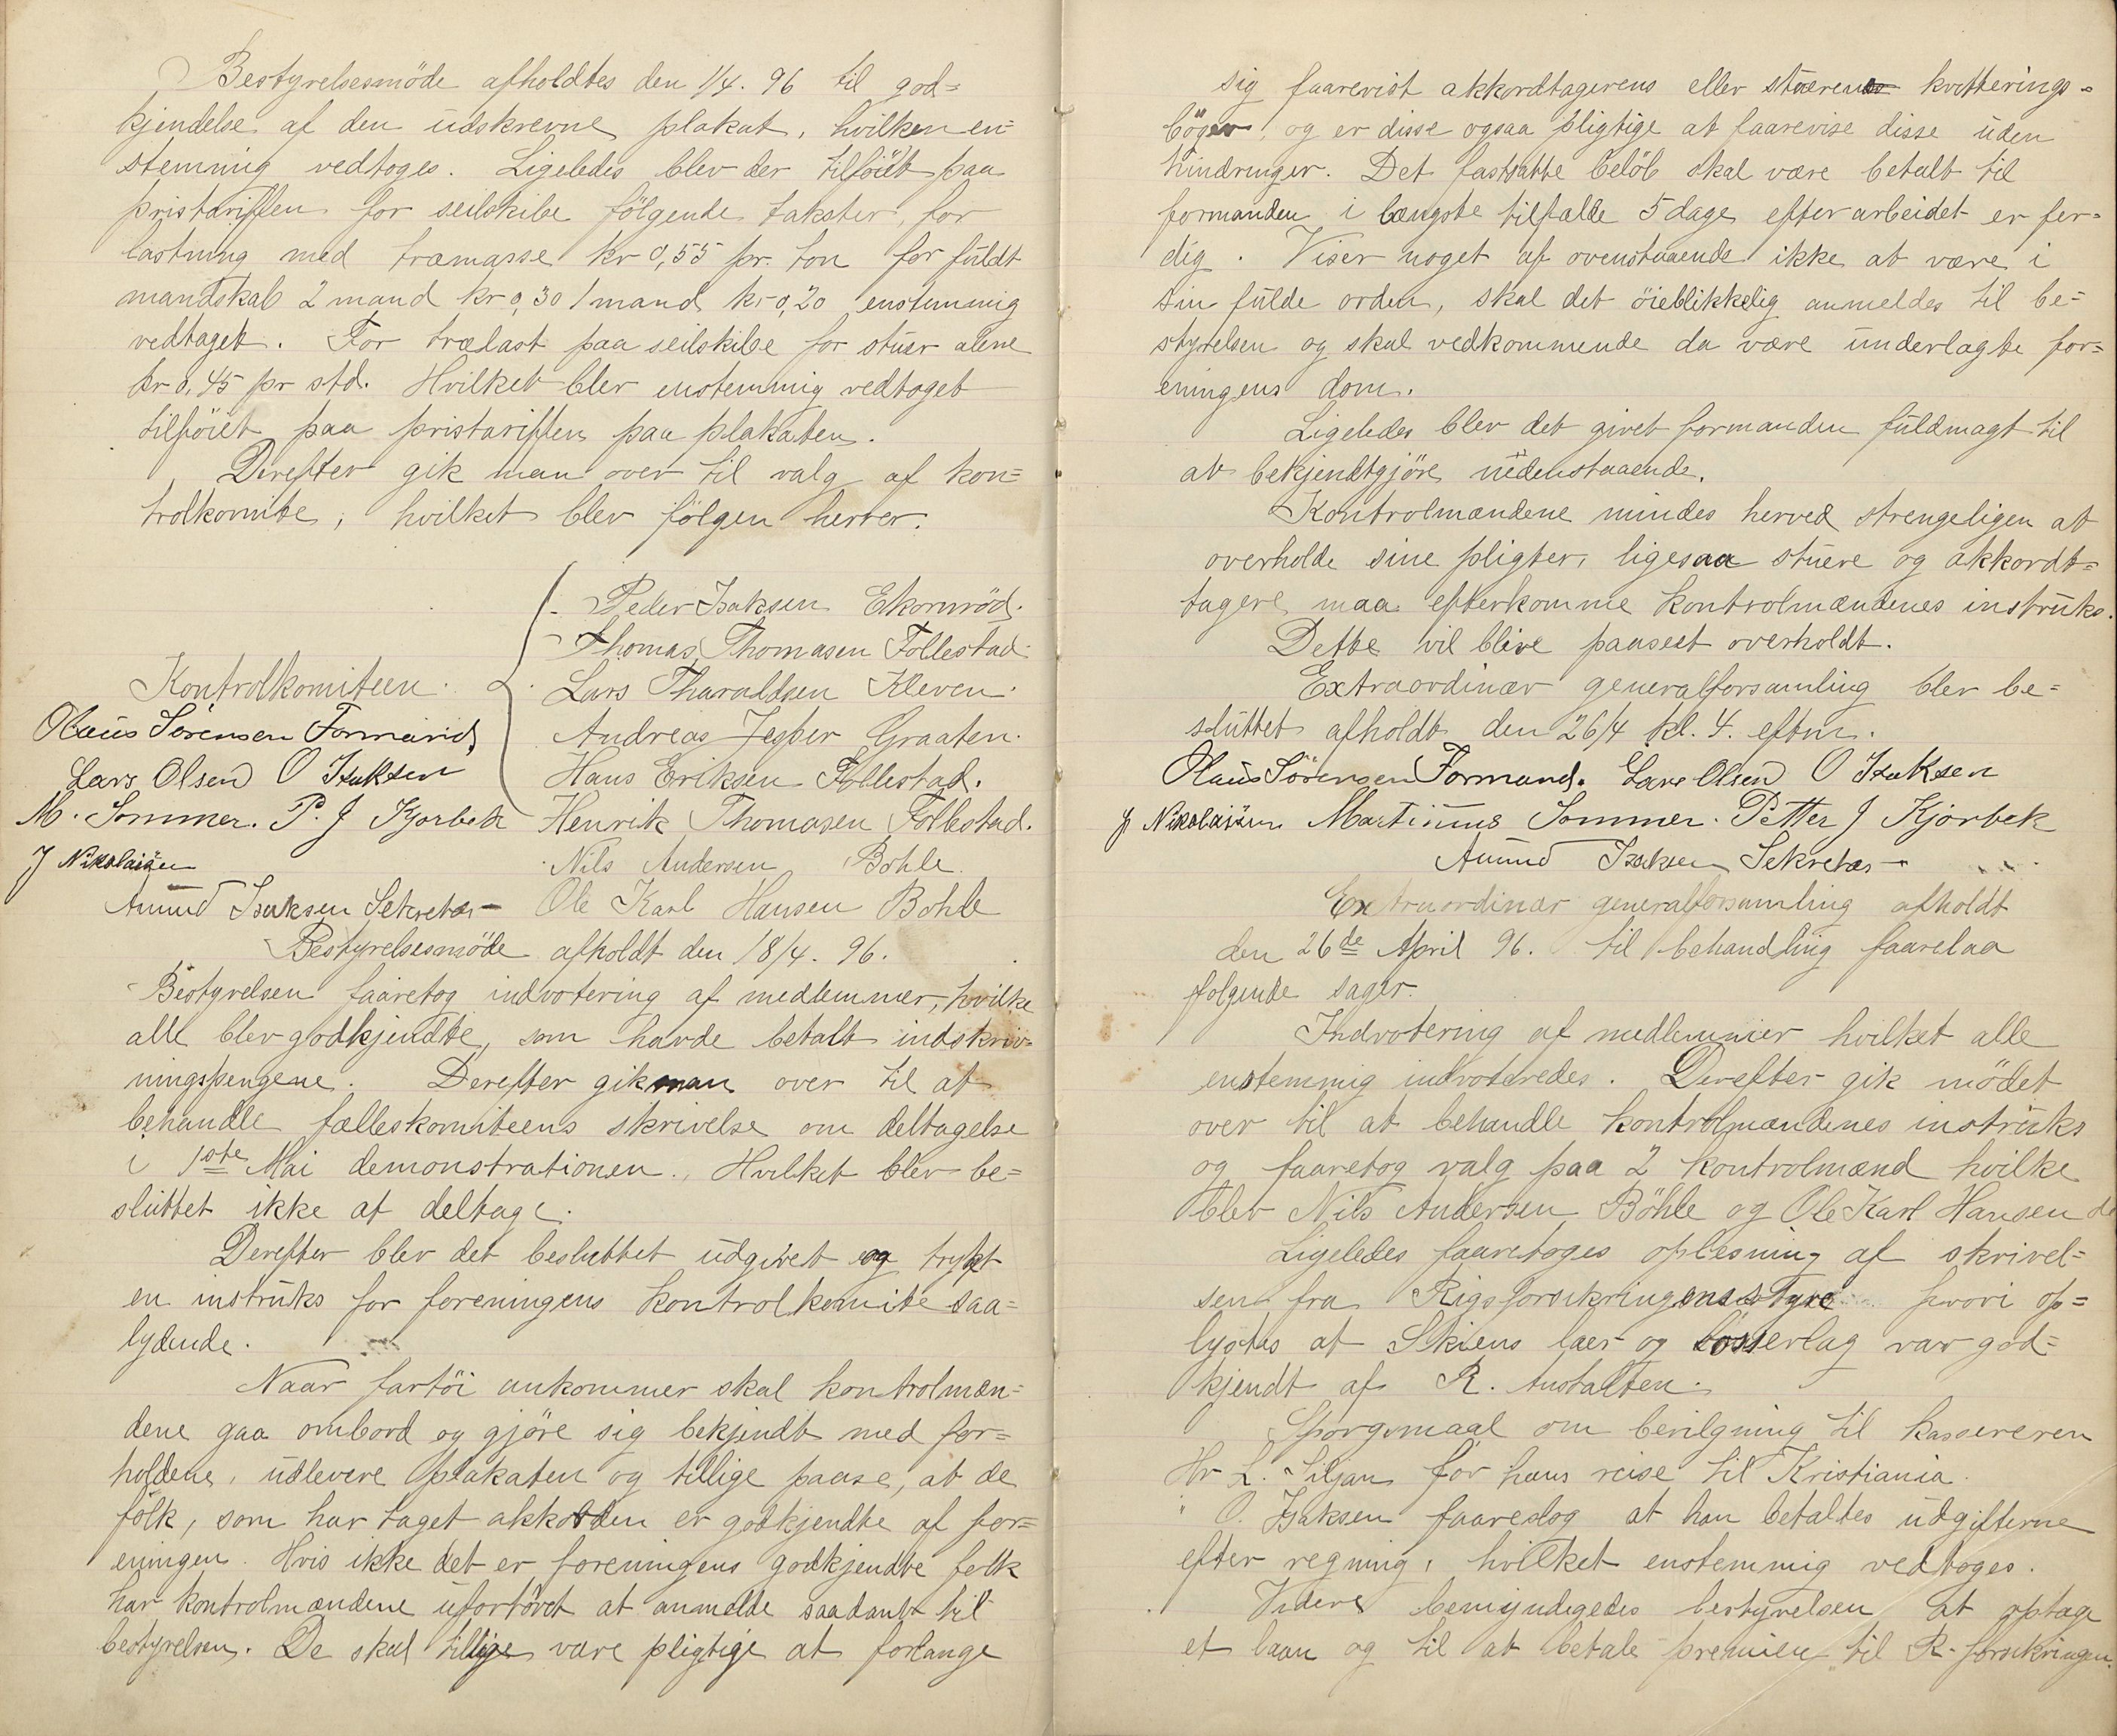 Bestyrelsesmöde afholdtes den 1/4. 96 til god=
kjendelse af den udskrevne plakat, hvilken en=
stemmig vedtoges. Ligeledes blev der tilföiet paa
pristariffen for seilskibe fölgende takster, for
lastning med træmasse kr 0,55 pr. ton for fuldt
mandskab 2 mand kr 0,30 1 mand kr 0,20 enstemmig
vedtaget. For trælast paa seilskibe for stuer alene
kr 0,45 pr std. Hvilket blev enstemmig vedtaget
tilföiet paa pristariffen paa plakaten.
Derefter gik man over til valg af kon=
trolkomite, hvilket blev fölgen herrer.
Peder Isaksen Ekornröd.
Thomas Thomasen Follestad.
Kontrolkomiteen. Lars Tharaldsen Kleven.
Olaus Sörensen Formand, Andreas Jesper Graaten.
Lars Olsen O Isaksen Hans Eriksen Follestad.
M. Sommer. P. J Kjorbek Henrik Thomasen Follestad.
J Nikolaisen Nils Andersen Bohle.
Amund Isaksen Sekretær Ole Karl Hansen Bohle
Bestyrelsesmöde afholdt den 18/4. 96.
Bestyrelsen faaretog indvotering af medlemmer, hvilke
alle blev godkjendte, som havde betalt indskriv=
ningspengene. Derefter gik man over til at
behandle fælleskomiteens skrivelse om deltagelse
i 1ste Mai demonstrationen. Hvilket blev be=
sluttet ikke at deltage.
Derefter blev det besluttet udgivet og trykt
en instruks for foreningens kontrolkomité saa=
lydende.
Naar fartöi ankommer skal kontrolmæn=
dene gaa ombord og gjöre sig bekjendt med for=
holdene, udlevere plakaten og tillige paase, at de
folk, som har taget akkorden er godkjendte af for=
eningen. Hvis ikke det er foreningens godkjendte folk
har kontrolmændene ufortövet at anmelde saadant til
bestyrelsen. De skal tillige være pligtige at forlange
sig faarevist akkordtagerens eller stuerens kvitterings=
böger, og er disse ogsaa pligtige at faarevise disse uden
hindringer. Det fastsatte belöb skal være betalt til
formanden i længste tilfælde 5 dage efter arbeidet er fer=
dig. Viser noget af ovenstaaende ikke at være i
sin fulde orden, skal det öieblikkelig anmeldes til be=
styrelsen og skal vedkommende da være underlagte for=
eningens dom.
Ligeledes blev det givet formanden fuldmagt til
at bekjendtgjöre nedenstaaende.
Kontrolmændene mindes herved strengeligen at
overholde sine pligter, ligesaa stuere og akkordt=
tagere maa efterkomme kontrolmændenes instruks.
Dette vil blive paaseet overholdt.
Extraordinær generalforsamling blev be=
sluttet afholdt den 26/4 kl. 4. eftm.
Olaus Sörensen Formand. Lars Olsen O Isaksen
J Nikolaisen Martinius Sommer. Petter J Kjorbek
Amund Isaksen Sekretær
Extraordinær generalforsamling afholdt
den 26de April 96. til behandling faarelaa
folgende sager.
Indvotering af medlemmer hvilket alle
enstemmig indvoteredes. Derefter gik mödet
over til at behandle kontrolmændenes instruks
og faaretog valg paa 2 kontrolmænd hvilke
blev Nils Andersen Böhle og Ole Karl Hansen do
Ligeledes faaretoges oplesning af skrivel=
sen fra Rigsforsikringens styre hvori op=
lystes at Skiens laer og losserlag var god=
kjendt af R. Anstalten.
Sporgsmaal om bevilgning til kassereren
Hr L. Siljan for hans reise til Kristiania.
" O. Isaksen faareslog at han betaltes udgifterne
efter regning, hvilket enstemmig vedtoges.
Videre bemyndigedes bestyrelsen at optage
et laan og til at betale premien til R-forsikringen.